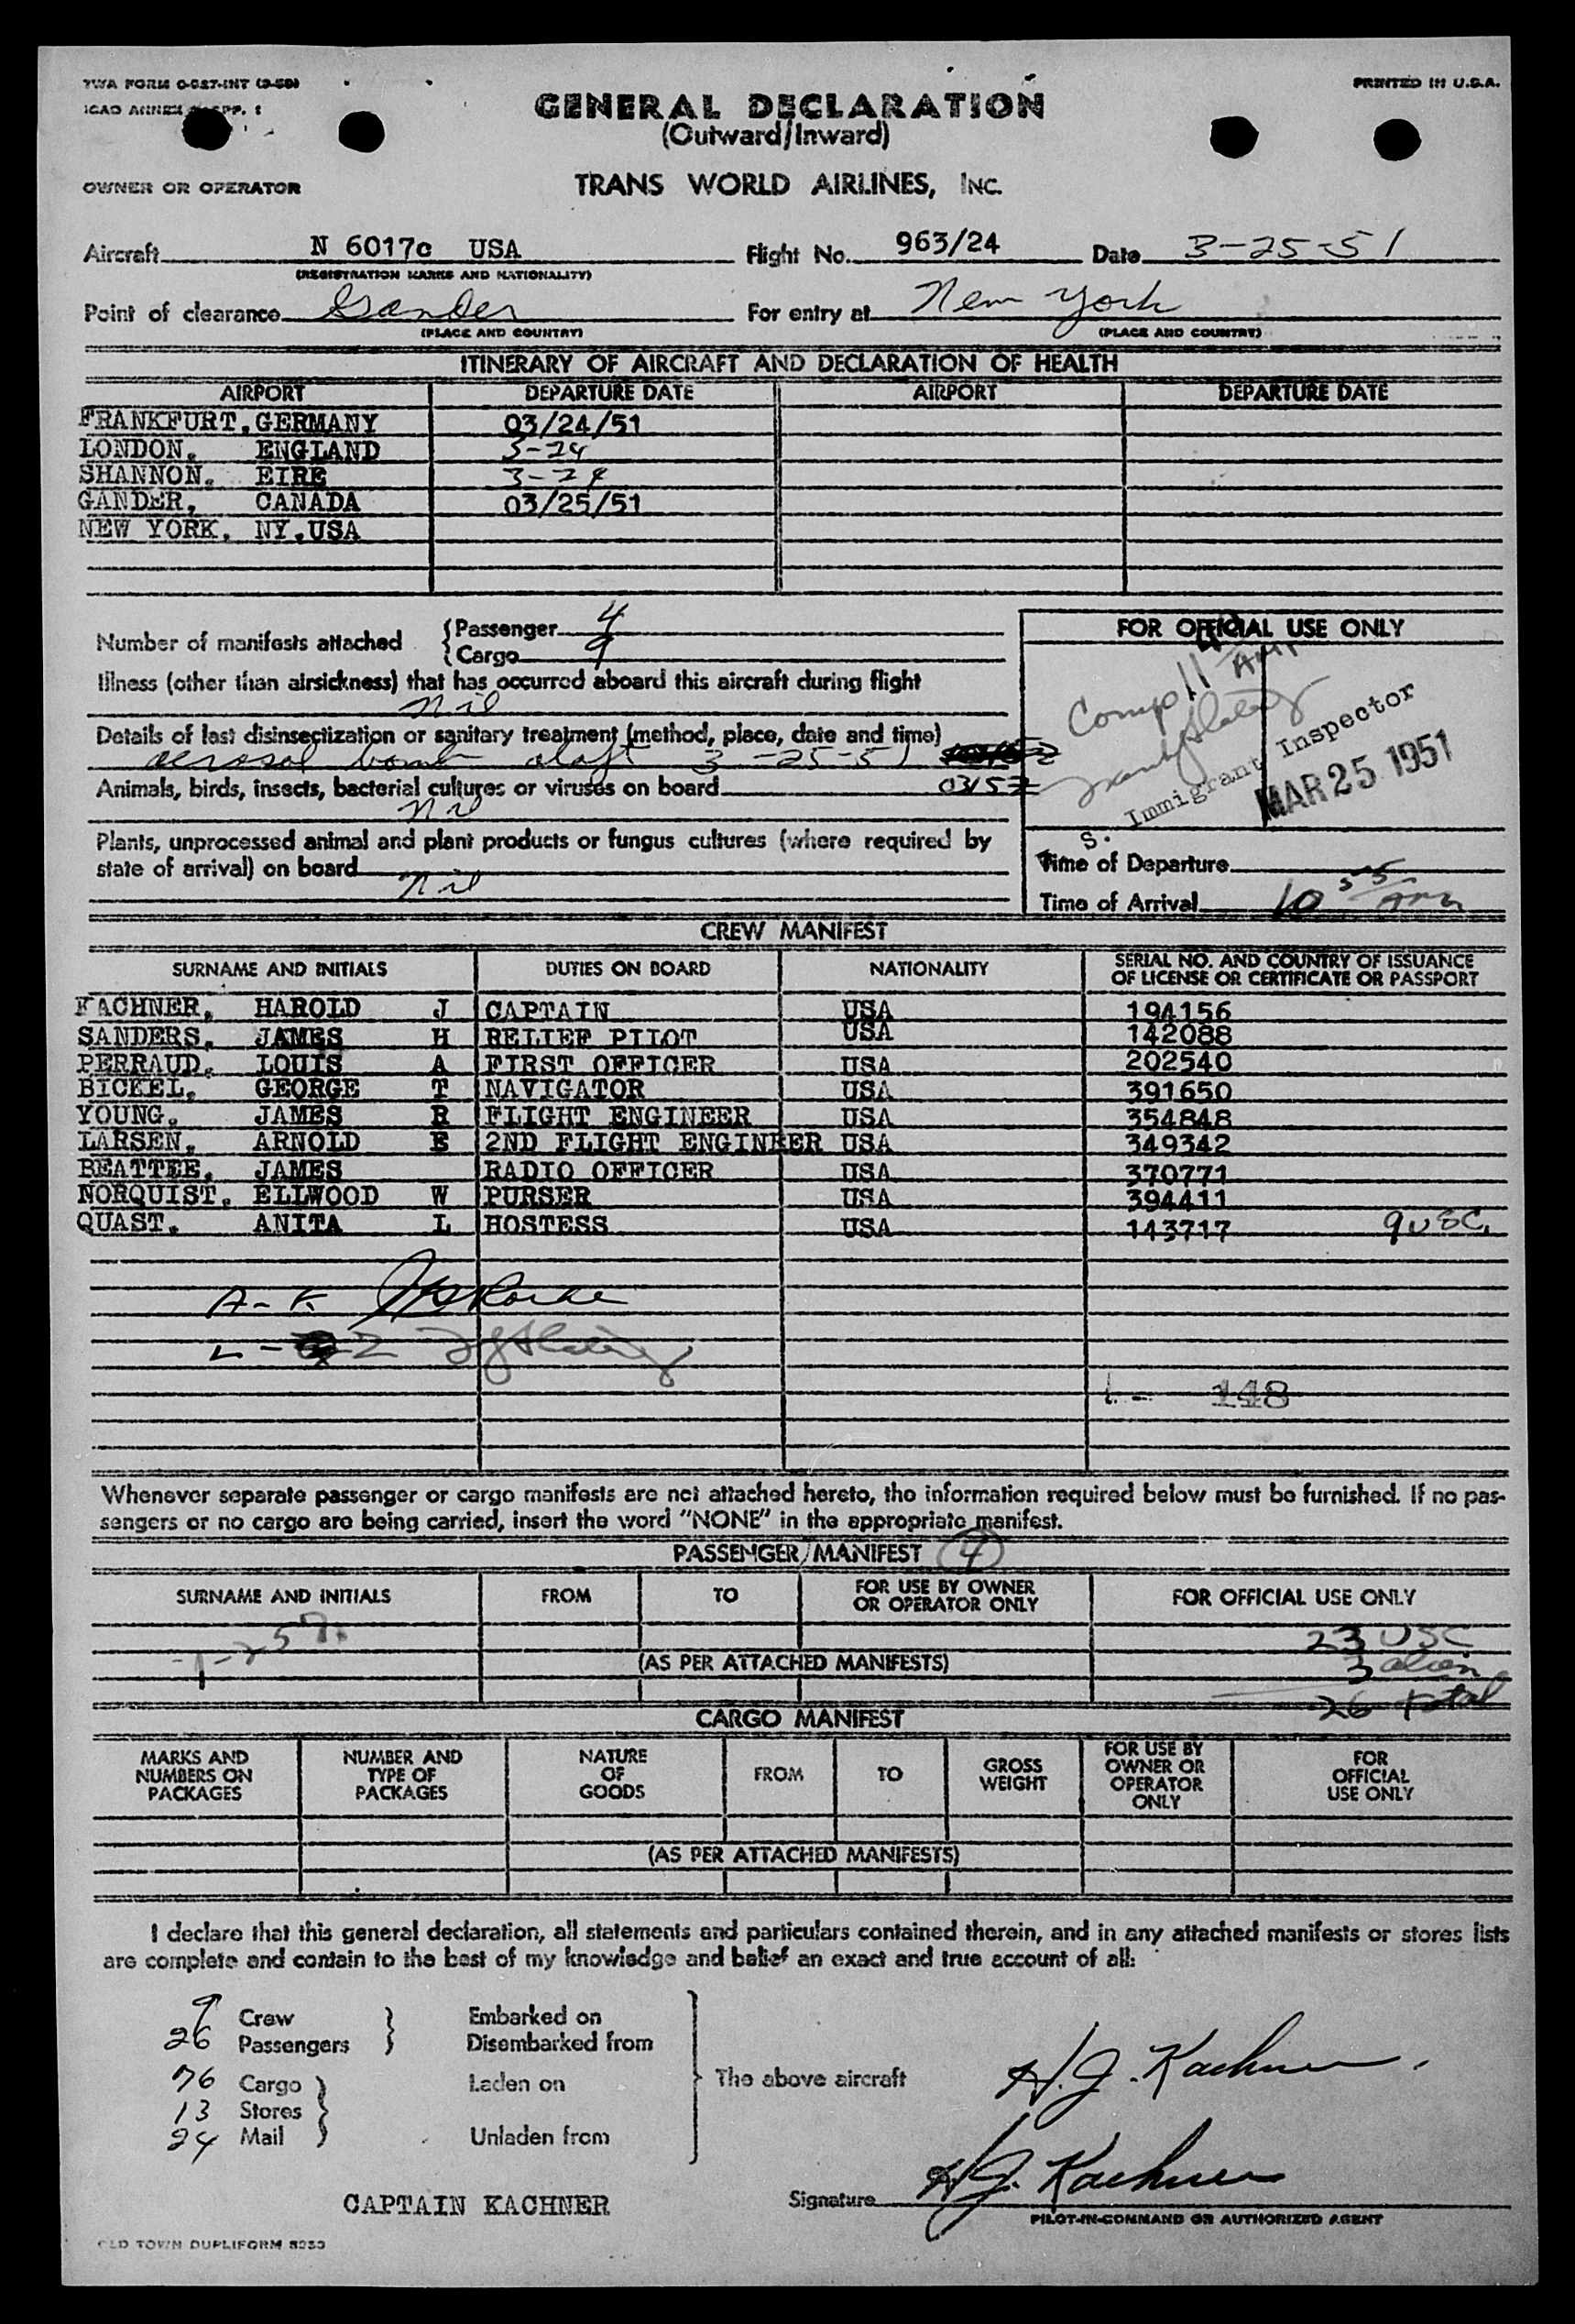 TWA FORM O-027-INT (3-50)
PRINTED IN U.S.A.
ICAO ANNEX APP. 1
GENERAL DECLARATION
(Outward/Inward)
OWNER OR OPERATOR TRANS WORLD AIRLINES, INC.
Aircraft N 6017c USA Flight No. 963/24 Date 3-25-51
(REGISTRATION MARKS AND NATIONALITY)
Point of clearance Gander For entry at New York
(PLACE AND COUNTRY) (PLACE AND COUNTRY)
ITINERARY OF AIRCRAFT AND DECLARATION OF HEALTH
AIRPORT DEPARTURE DATE AIRPORT DEPARTURE DATE
FRANKFURT, GERMANY 03/24/51
LONDON, ENGLAND 3-24
SHANNON, EIRE 3-24
GANDER, CANADA 03/25/51
NEW YORK, NY.USA
Number of manifests attached
Passenger 4
Cargo 9
FOR OFFICIAL USE ONLY
Illness (other than airsickness) that has occurred aboard this aircraft during flight
nil
Details of last disinsectization or sanitary treatment (method, place, date and time)
aerosol bomb aloft 3-25-51
0315Z
Animals, birds, insects, bacterial cultures or viruses on board
nil
Plants, unprocessed animal and plant products or fungus cultures (where required by
state of arrival) on board
nil
Comp 11 AM
S. Immigrant Inspector
MAR 25 1951
Time of Departure
Time of Arrival 10 55 am
CREW MANIFEST
SURNAME AND INITIALS DUTIES ON BOARD NATIONALITY SERIAL NO. AND COUNTRY OF ISSUANCE
OF LICENSE OR CERTIFICATE OR PASSPORT
KACHNER, HAROLD J CAPTAIN USA 194156
SANDERS, JAMES H RELIEF PILOT USA 142088
PERRAUD, LOUIS A FIRST OFFICER USA 202540
BICKEL, GEORGE T NAVIGATOR USA 391650
YOUNG, JAMES R FLIGHT ENGINEER USA 354848
LARSEN, ARNOLD E 2ND FLIGHT ENGINEER USA 349342
BEATTEE, JAMES RADIO OFFICER USA 370771
NORQUIST, ELLWOOD W PURSER USA 394411
QUAST, ANITA L HOSTESS USA 143717 9 USC.
A-F.
L- 2
L - 148
Whenever separate passenger or cargo manifests are not attached hereto, the information required below must be furnished. If no pas-
sengers or no cargo are being carried, insert the word "NONE" in the appropriate manifest.
PASSENGER MANIFEST 4
SURNAME AND INITIALS FROM TO FOR USE BY OWNER
OR OPERATOR ONLY FOR OFFICIAL USE ONLY
23 USC
(AS PER ATTACHED MANIFESTS) 3 alien
26 total
CARGO MANIFEST
MARKS AND
NUMBERS ON
PACKAGES
NUMBER AND
TYPE OF
PACKAGES
NATURE
OF
GOODS
FROM
TO
GROSS
WEIGHT
FOR USE BY
OWNER OR
OPERATOR
ONLY
FOR
OFFICIAL
USE ONLY
(AS PER ATTACHED MANIFESTS)
I declare that this general declaration, all statements and particulars contained therein, and in any attached manifests or stores lists
are complete and contain to the best of my knowledge and belief an exact and true account of all:
9 Crew Embarked on
26 Passengers Disembarked from
76 Cargo Laden on The above aircraft H. J. Kachner.
13 Stores
24 Mail Unladen from
CAPTAIN KACHNER Signature H J. Kachner
PILOT-IN-COMMAND OR AUTHORIZED AGENT
OLD TOWN DUPLIFORM 8233